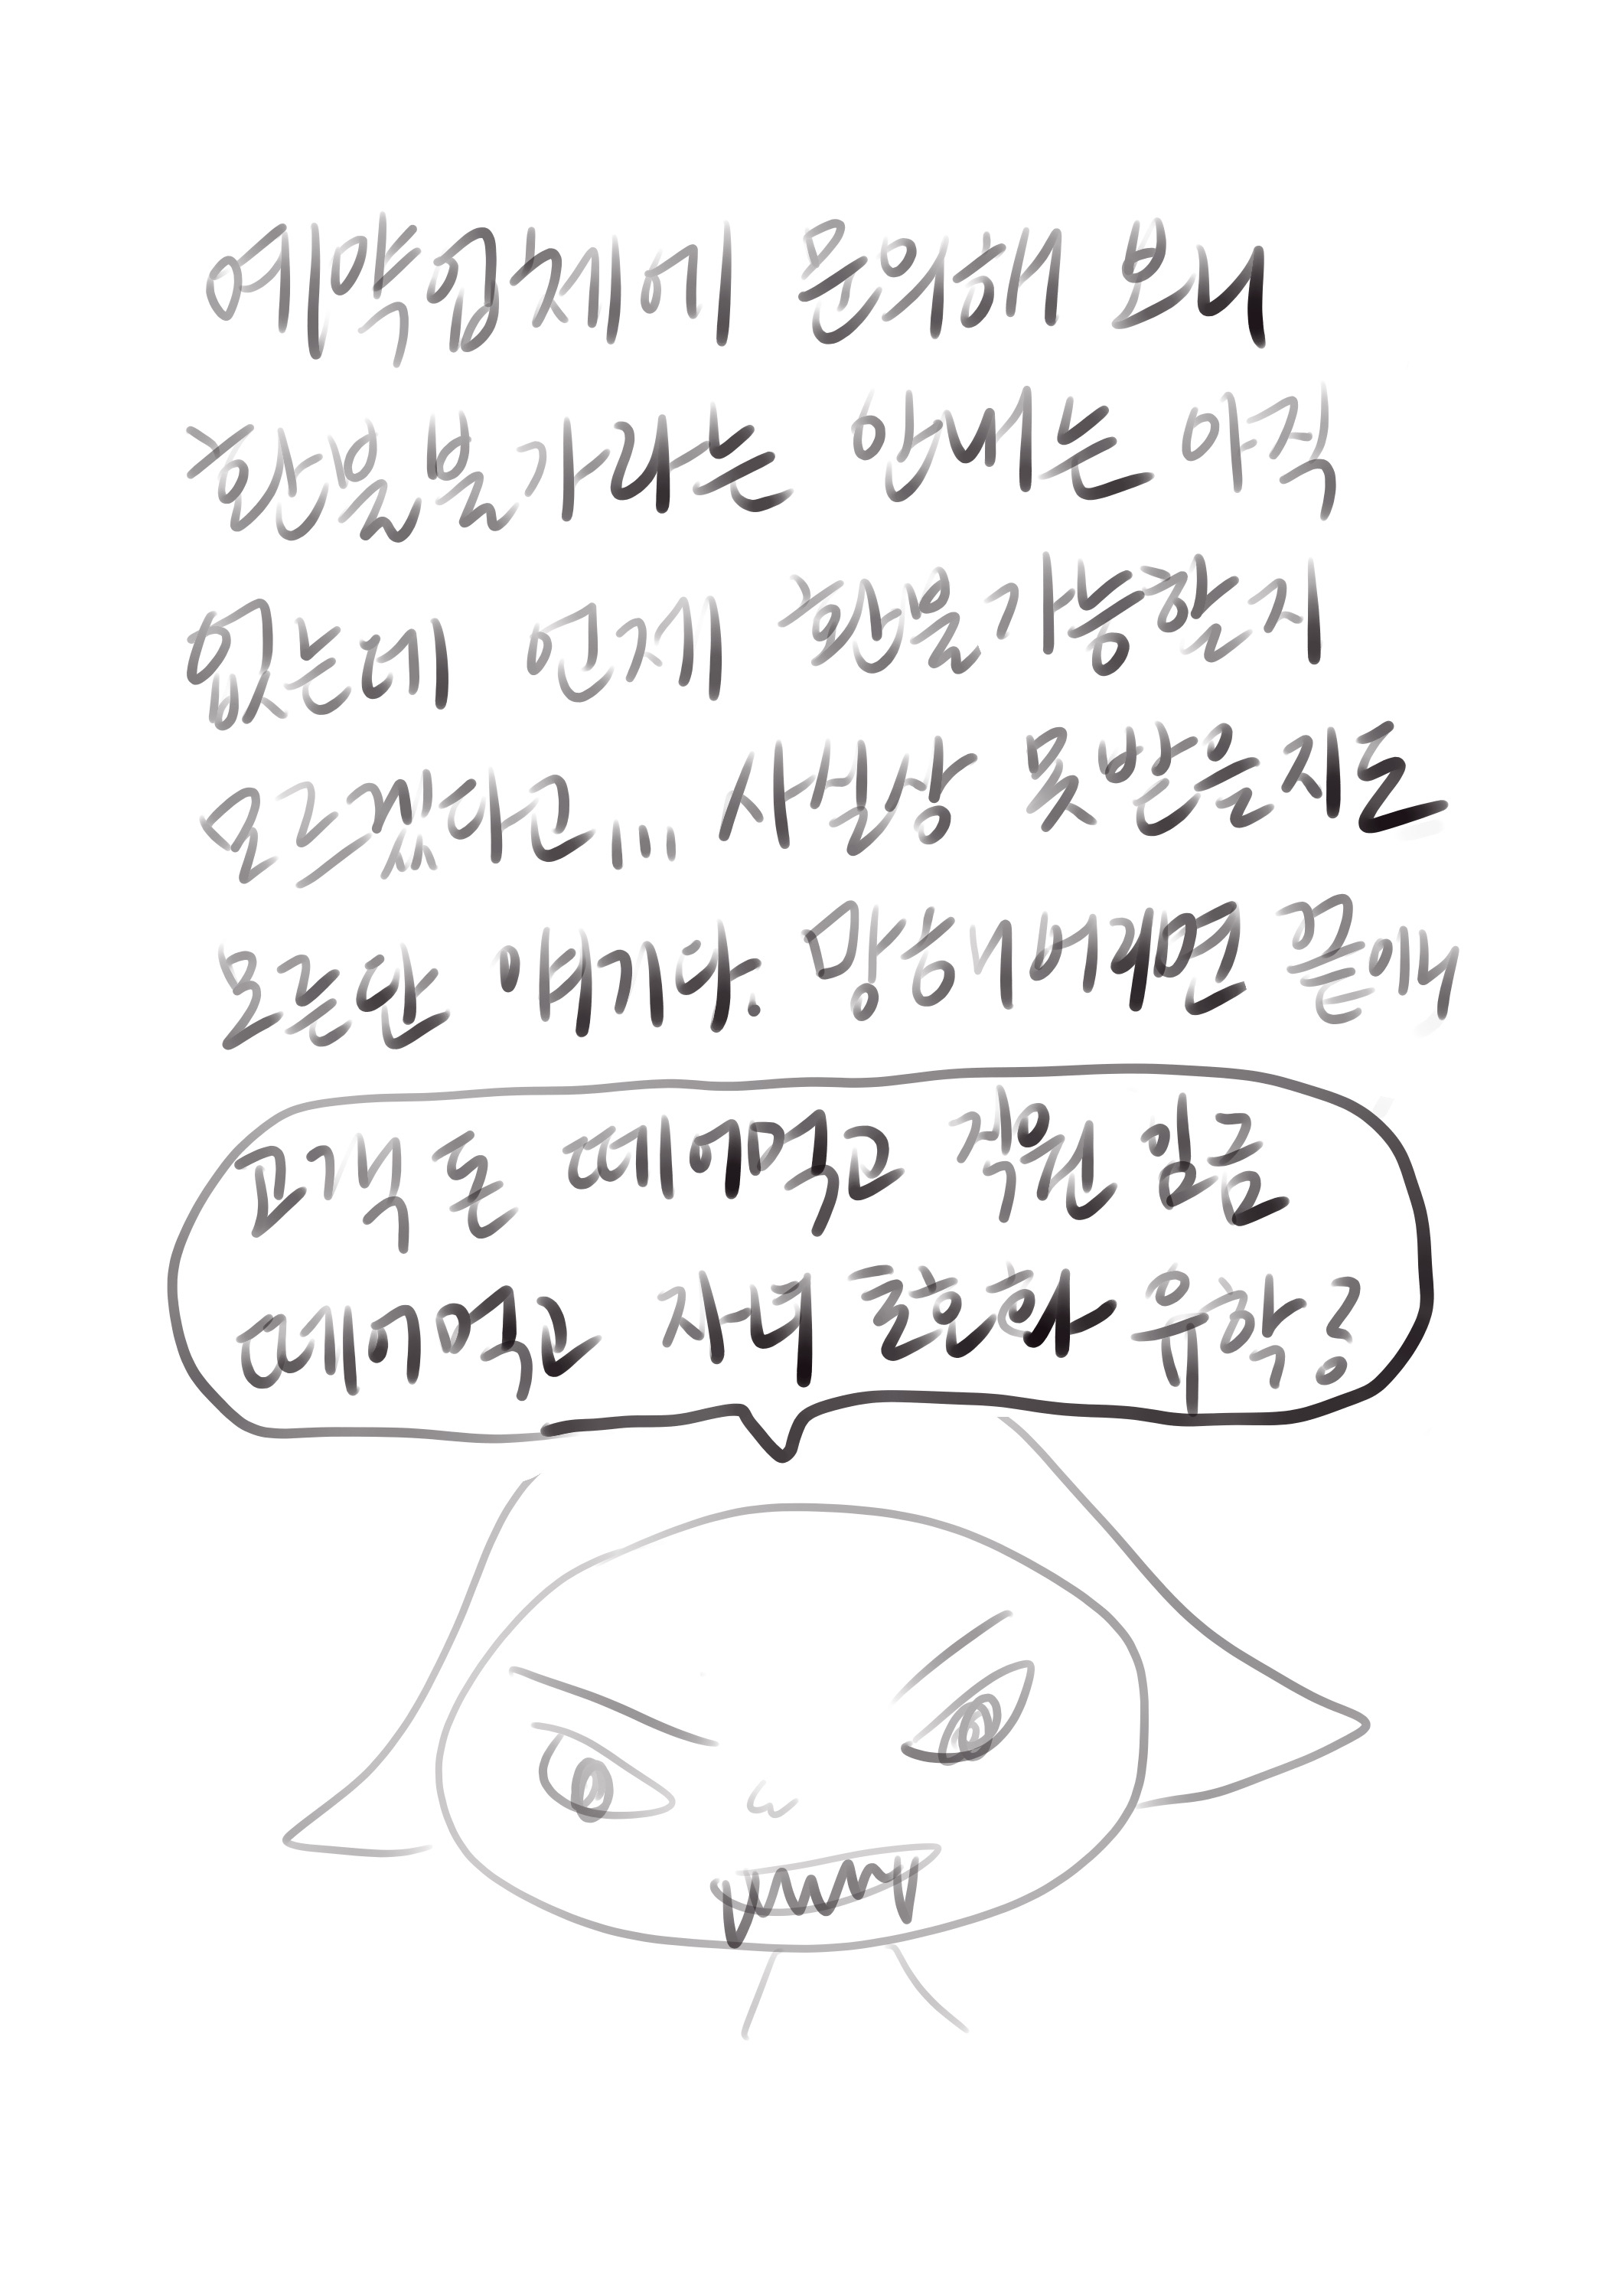 예약업체에 문의해 보니
환불을 가라는 안내는 아직
없는데 언제 환불 가능할지
모르겠다고... 사실상 못 받을지도
모른단 얘기다. 망해버리면 끝이니,
떼어먹고 직원 임금
떼어먹고 자녀 호화 유학;